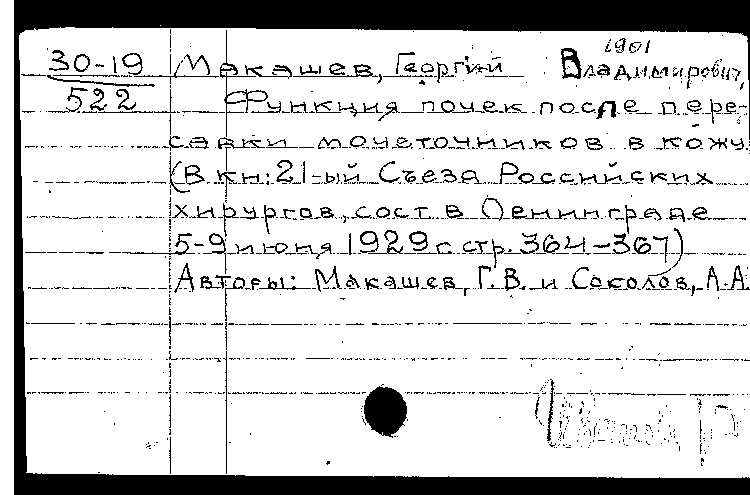 1901
30-19 Макашев, Георгий Владимирович,
522 Функция почек после пере-
садки мочеточников в кожу
(В кн: 21-ый Съезд Российских
хирургов, сост. в Ленинграде
5-9 июня 1929 г. стр. 364-367)
Авторы: Макашев, Г. В. и Соколов, А.А.